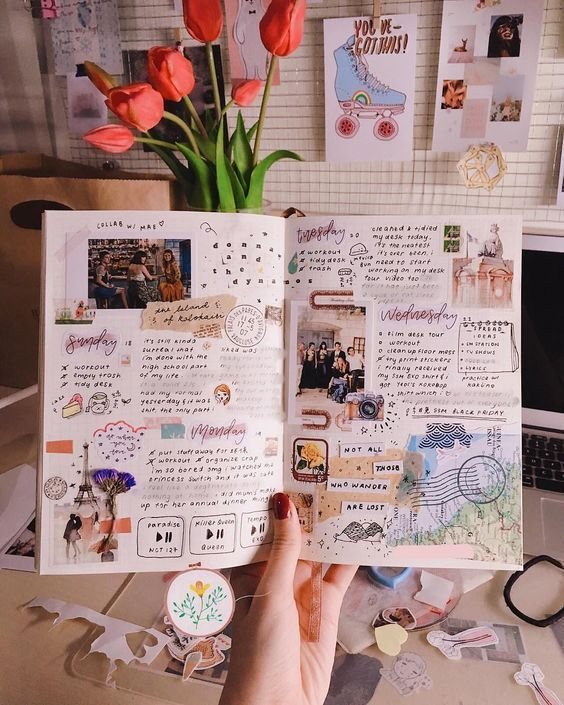 YOU'VE
GOT THIS!
COLLAB W/ MAE
donna
and
the
dynamos
the island
of Kalokairi
Sunday 18
workout
empty trash
tidy desk
it's still kinda
surreal that
i'm done with the
high school part
of my life.
Monday
put stuff away for SEYA
workout organize crap
i'm so bored omg i watched the
princess switch and it was cute
did mums make
up for her annual dinner thing
Paradise
NCT 127
Killer Queen
Queen
Tempo
EXO
tuesday 20
workout
tidy desk
trash
mexico
bun
cleaned & tidied
my desk today.
it's the neatest
it's ever been. i
need to start
working on my desk
tour video too
Wednesday
21
film desk tour
workout
clean up floor mess
try print stickers
i finally received
my SSM EXO shirt &
got Yeri's Kokobop
shirt which i
SPREAD
IDEAS
SM STATION
TV SHOWS
LYRICS
practice w/
SSM BLACK FRIDAY
NOT ALL
THOSE
WHO WANDER
ARE LOST